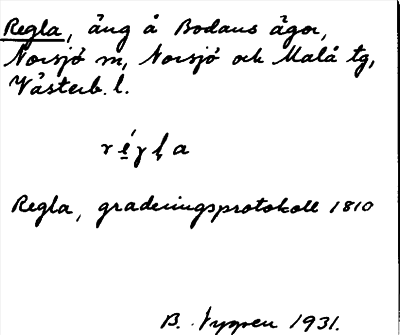 Regla, äng å Bodans ägor,
Norsjö m, Norsjö och Malå tg,
Västerb. l.
régla
Regla, graderingsprotokoll 1810
B. Nygren 1931.